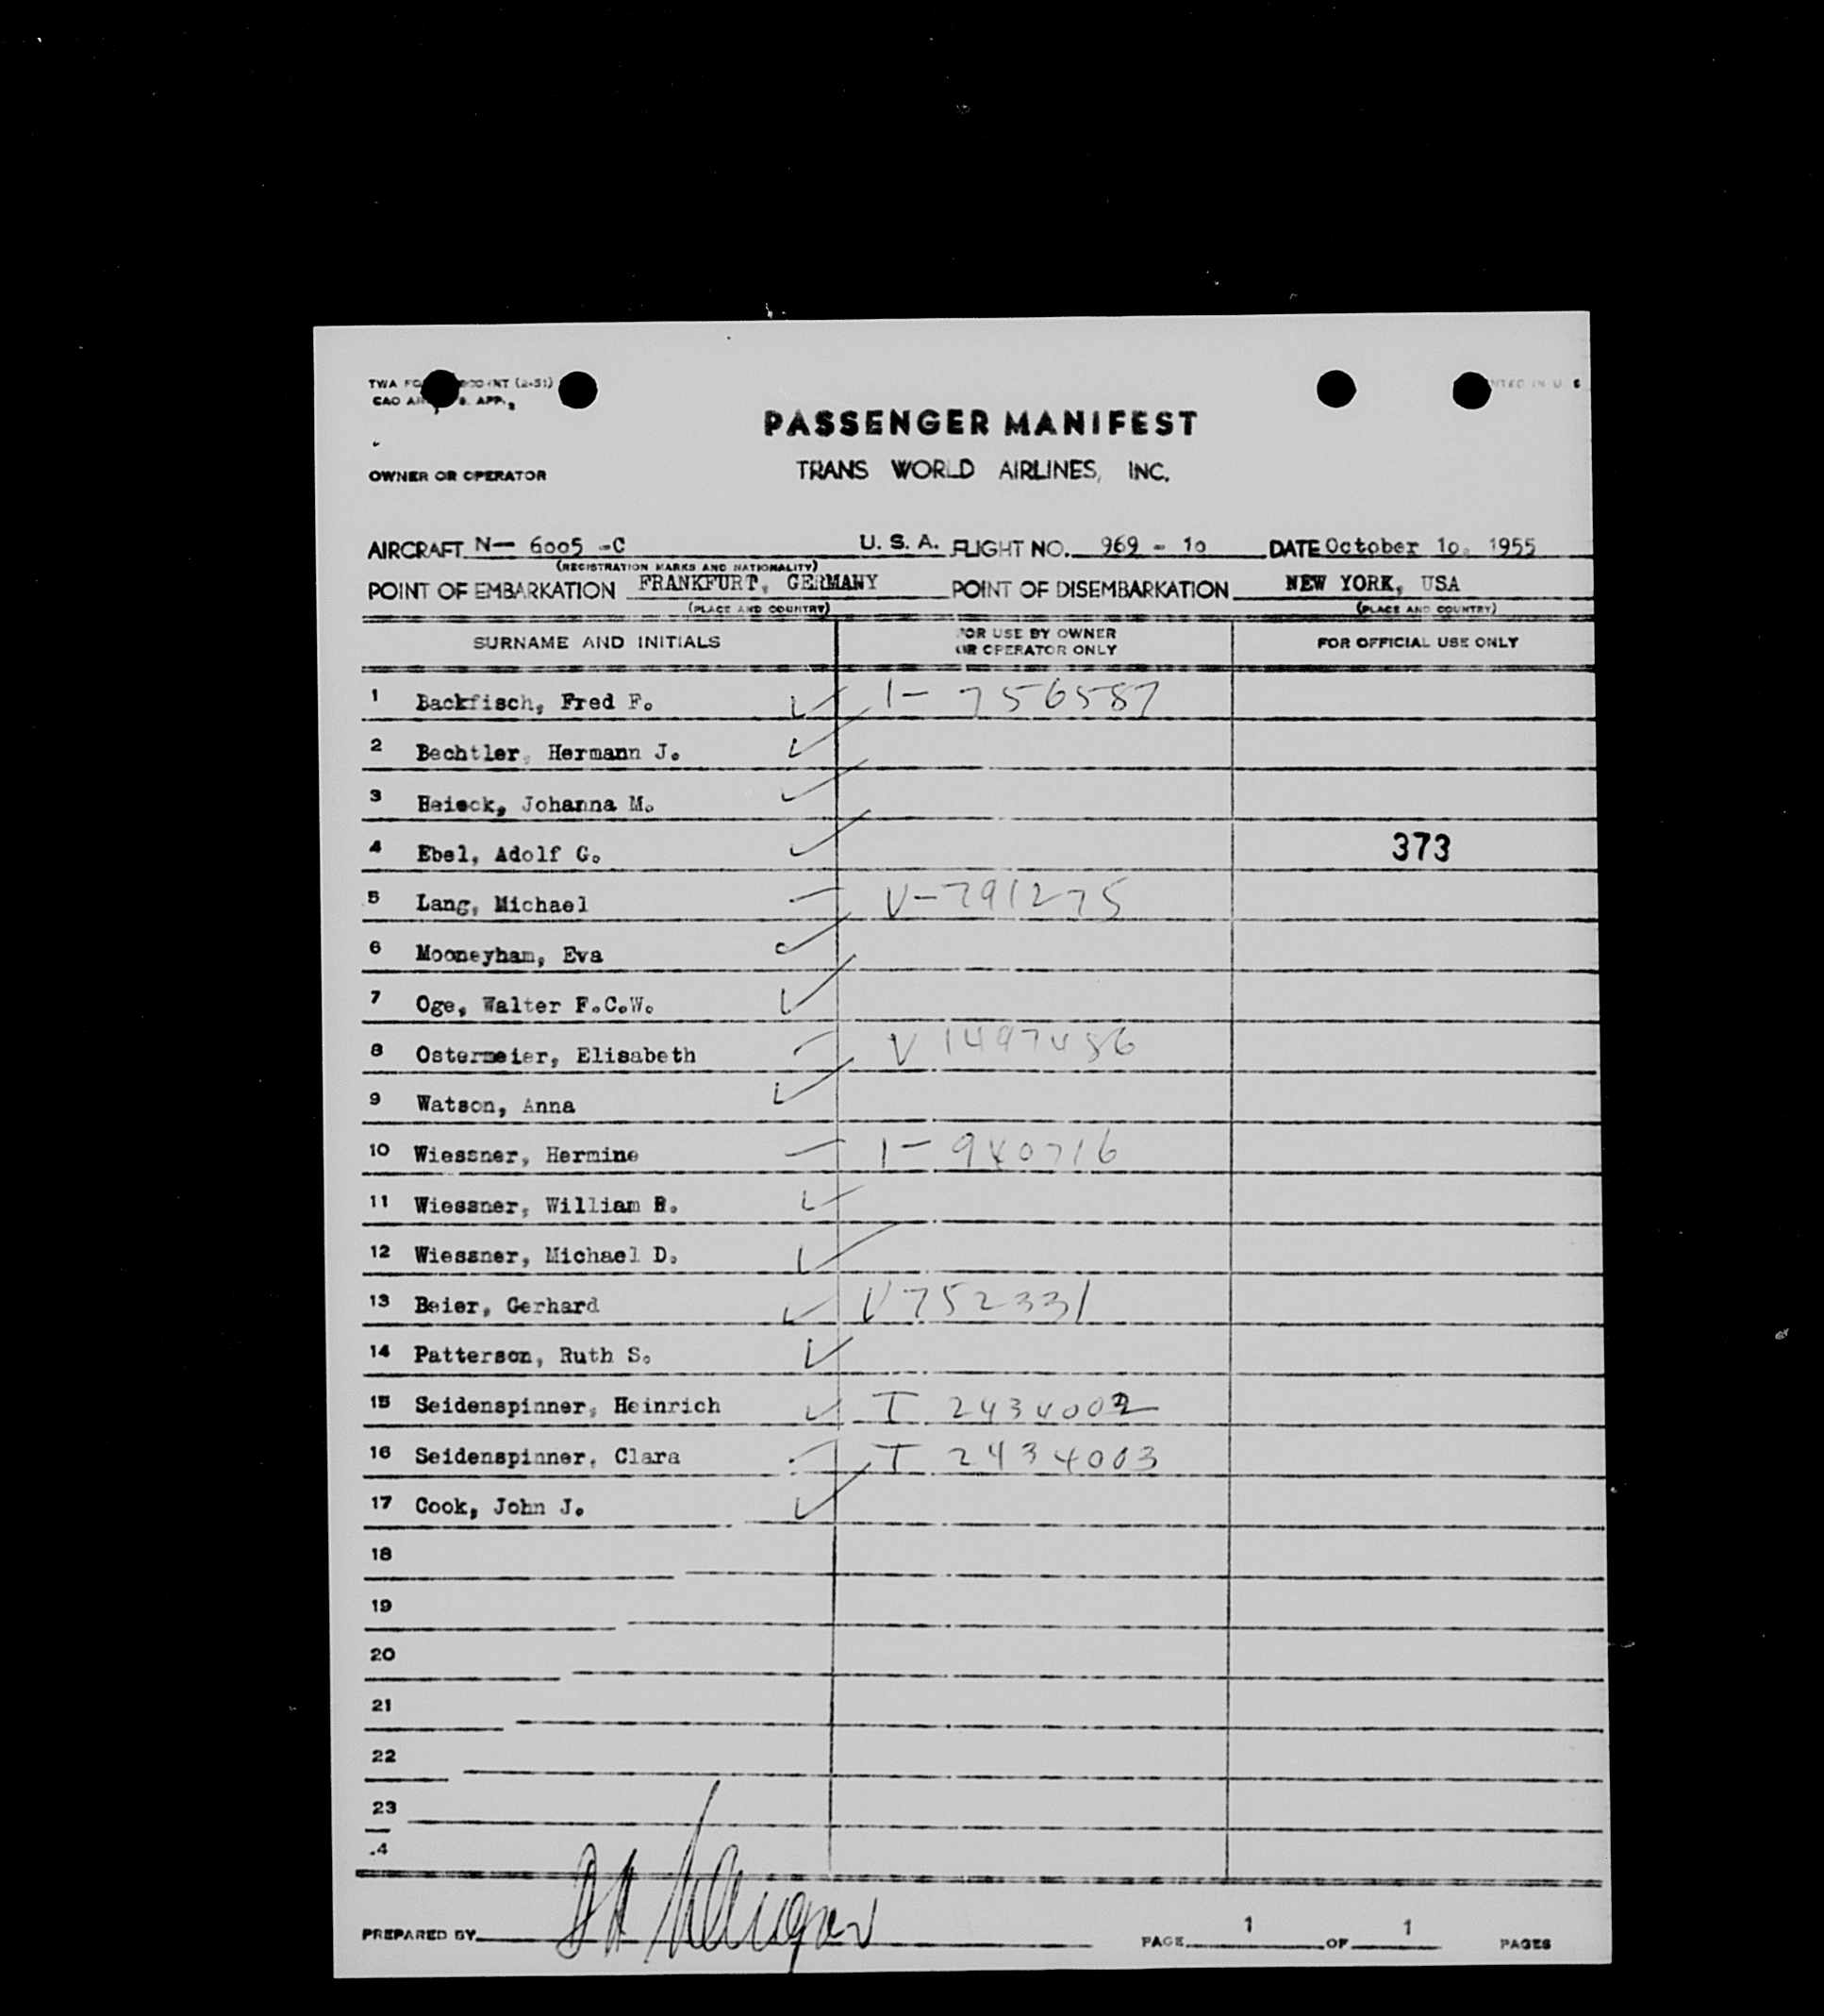 TWA
PASSENGER MANIFEST
OWNER OR OPERATOR TRANS WORLD AIRLINES, INC.
AIRCRAFT N— 6005 -C U. S. A. FLIGHT NO. 969 - 10 DATE October 10, 1955
(REGISTRATION MARKS AND NATIONALITY)
POINT OF EMBARKATION FRANKFURT, GERMANY POINT OF DISEMBARKATION NEW YORK, USA
(PLACE AND COUNTRY) (PLACE AND COUNTRY)
SURNAME AND INITIALS FOR USE BY OWNER OR OPERATOR ONLY FOR OFFICIAL USE ONLY
1 Backfisch, Fred F. 1- 756587
2 Bechtler, Hermann J.
3 Heieck, Johanna M.
4 Ebel, Adolf G. 373
5 Lang, Michael V-791275
6 Mooneyham, Eva
7 Oge, Walter F.C.W.
8 Ostermeier, Elisabeth V 1497486
9 Watson, Anna
10 Wiessner, Hermine 1- 940716
11 Wiessner, William R.
12 Wiessner, Michael D.
13 Beier, Gerhard V752331
14 Patterson, Ruth S.
15 Seidenspinner, Heinrich I 2434002
16 Seidenspinner, Clara I 2434003
17 Cook, John J.
18
19
20
21
22
23
PREPARED BY PAGE 1 OF 1 PAGES